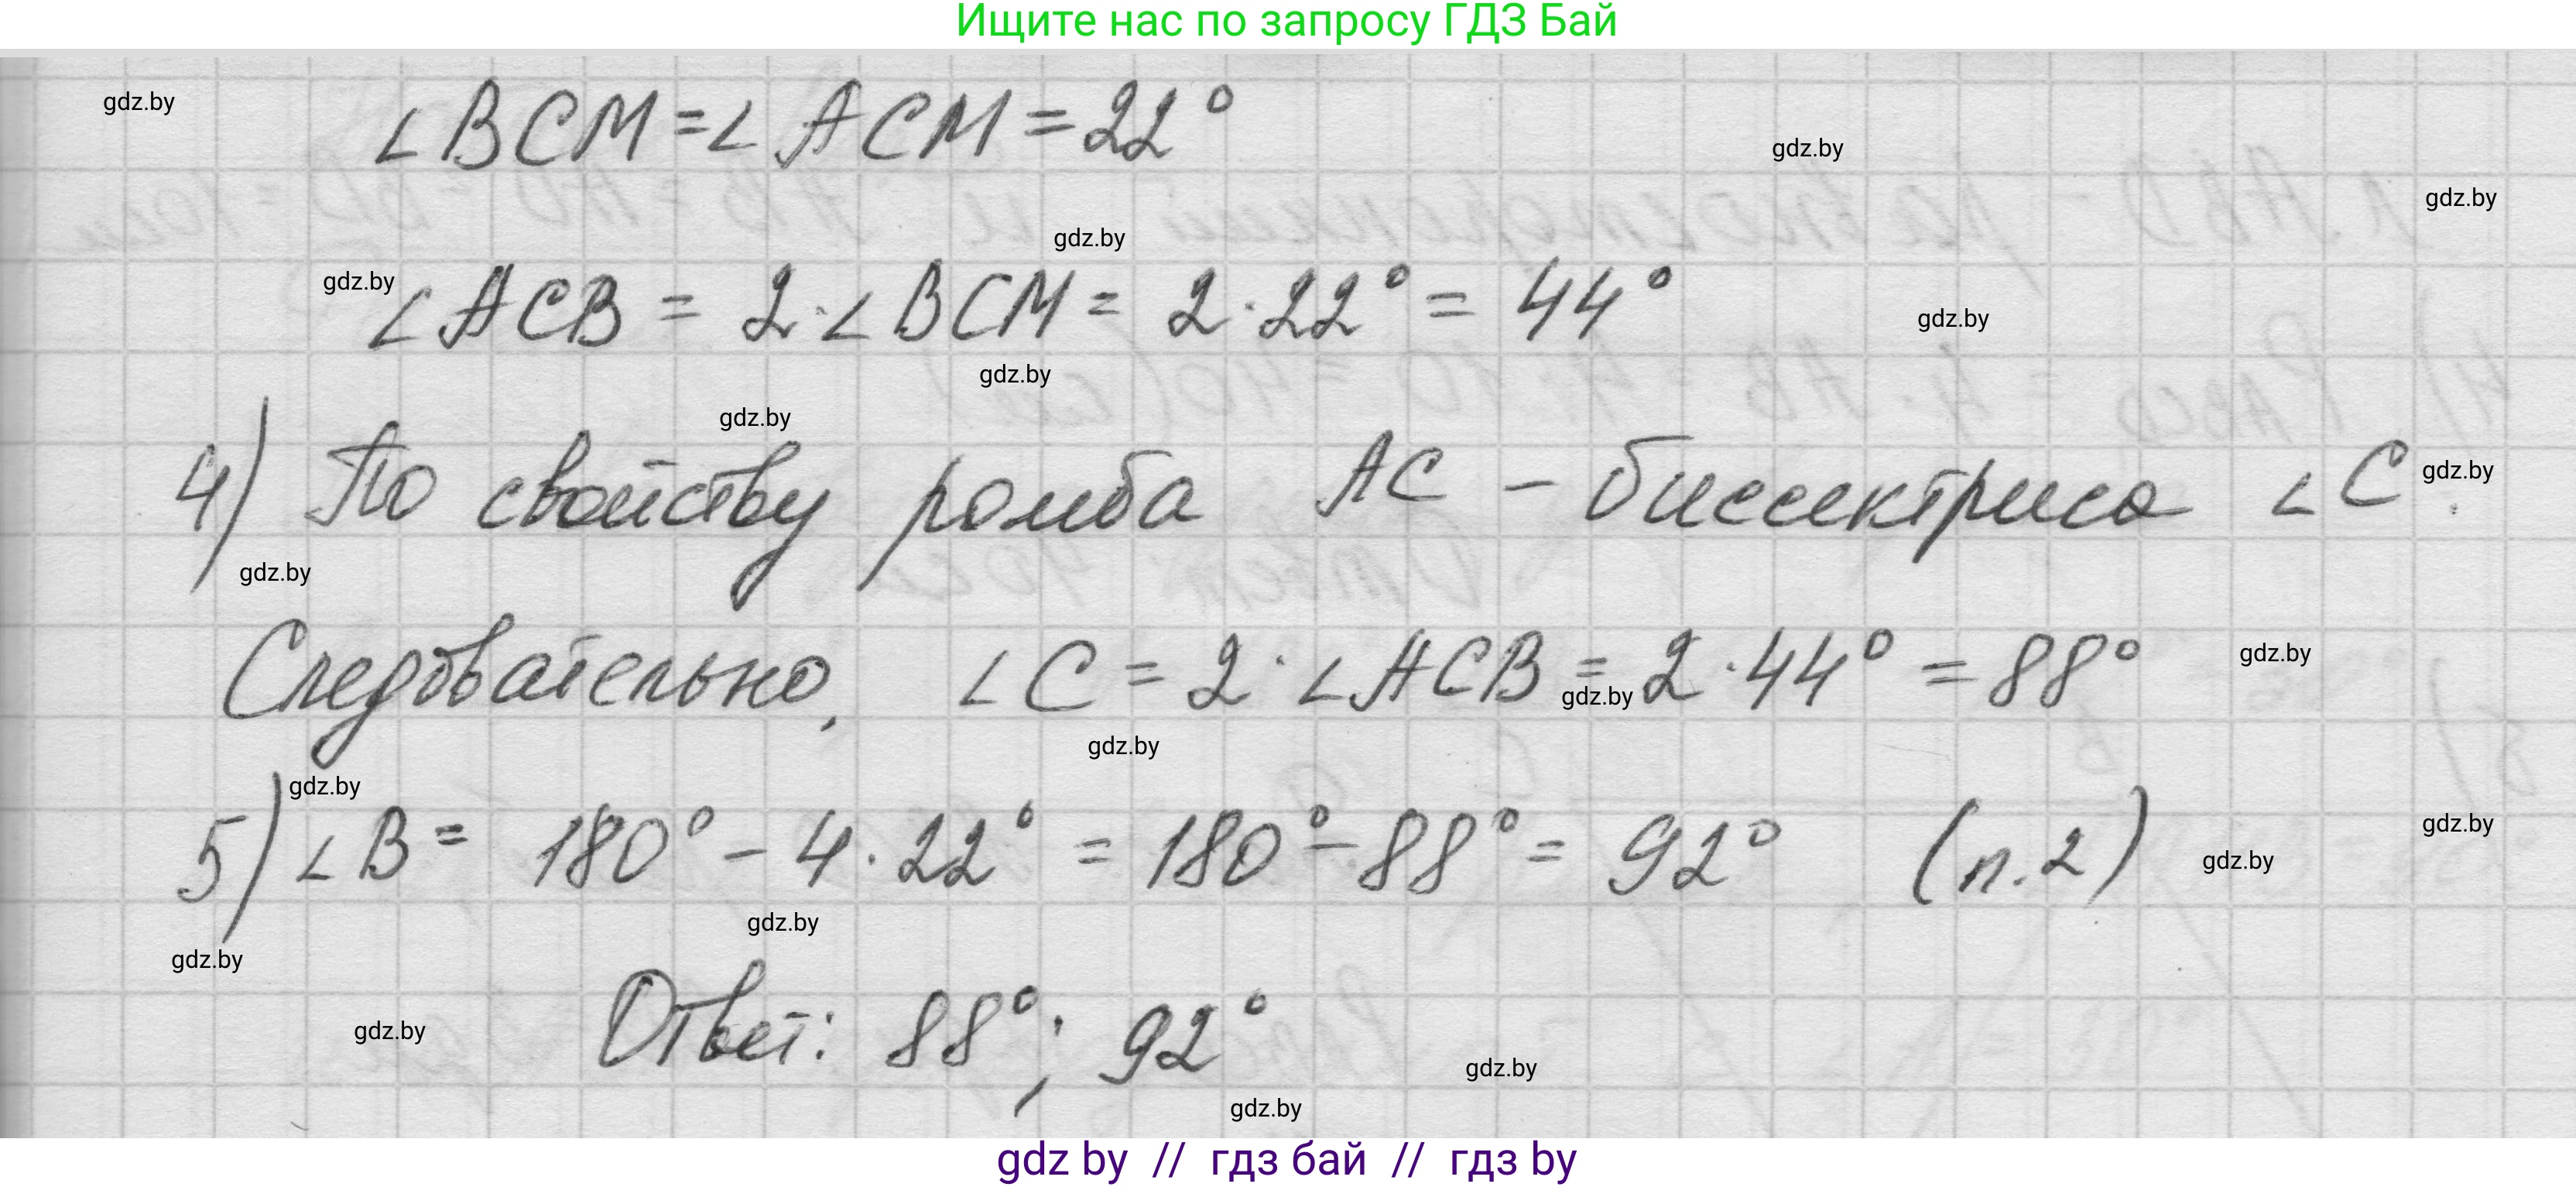 Ищите нас по запросу ГДЗ Бай
gdz.by
∠BCM=∠ACM=22°
gdz.by
gdz.by
gdz.by
gdz.by
∠ACB = 2·∠BCM = 2·22° = 44°
gdz.by
gdz.by
gdz.by
4) По свойству ромба AC – биссектриса ∠C.
gdz.by
gdz.by
Следовательно, ∠C = 2·∠ACB = 2·44° = 88°
gdz.by
gdz.by
gdz.by
gdz.by
5) ∠B = 180° – 4·22° = 180° – 88° = 92° (п.2)
gdz.by
gdz.by
gdz.by
gdz.by
Ответ: 88°; 92°
gdz.by
gdz.by
gdz.by
gdz by // гдз бай // гдз by